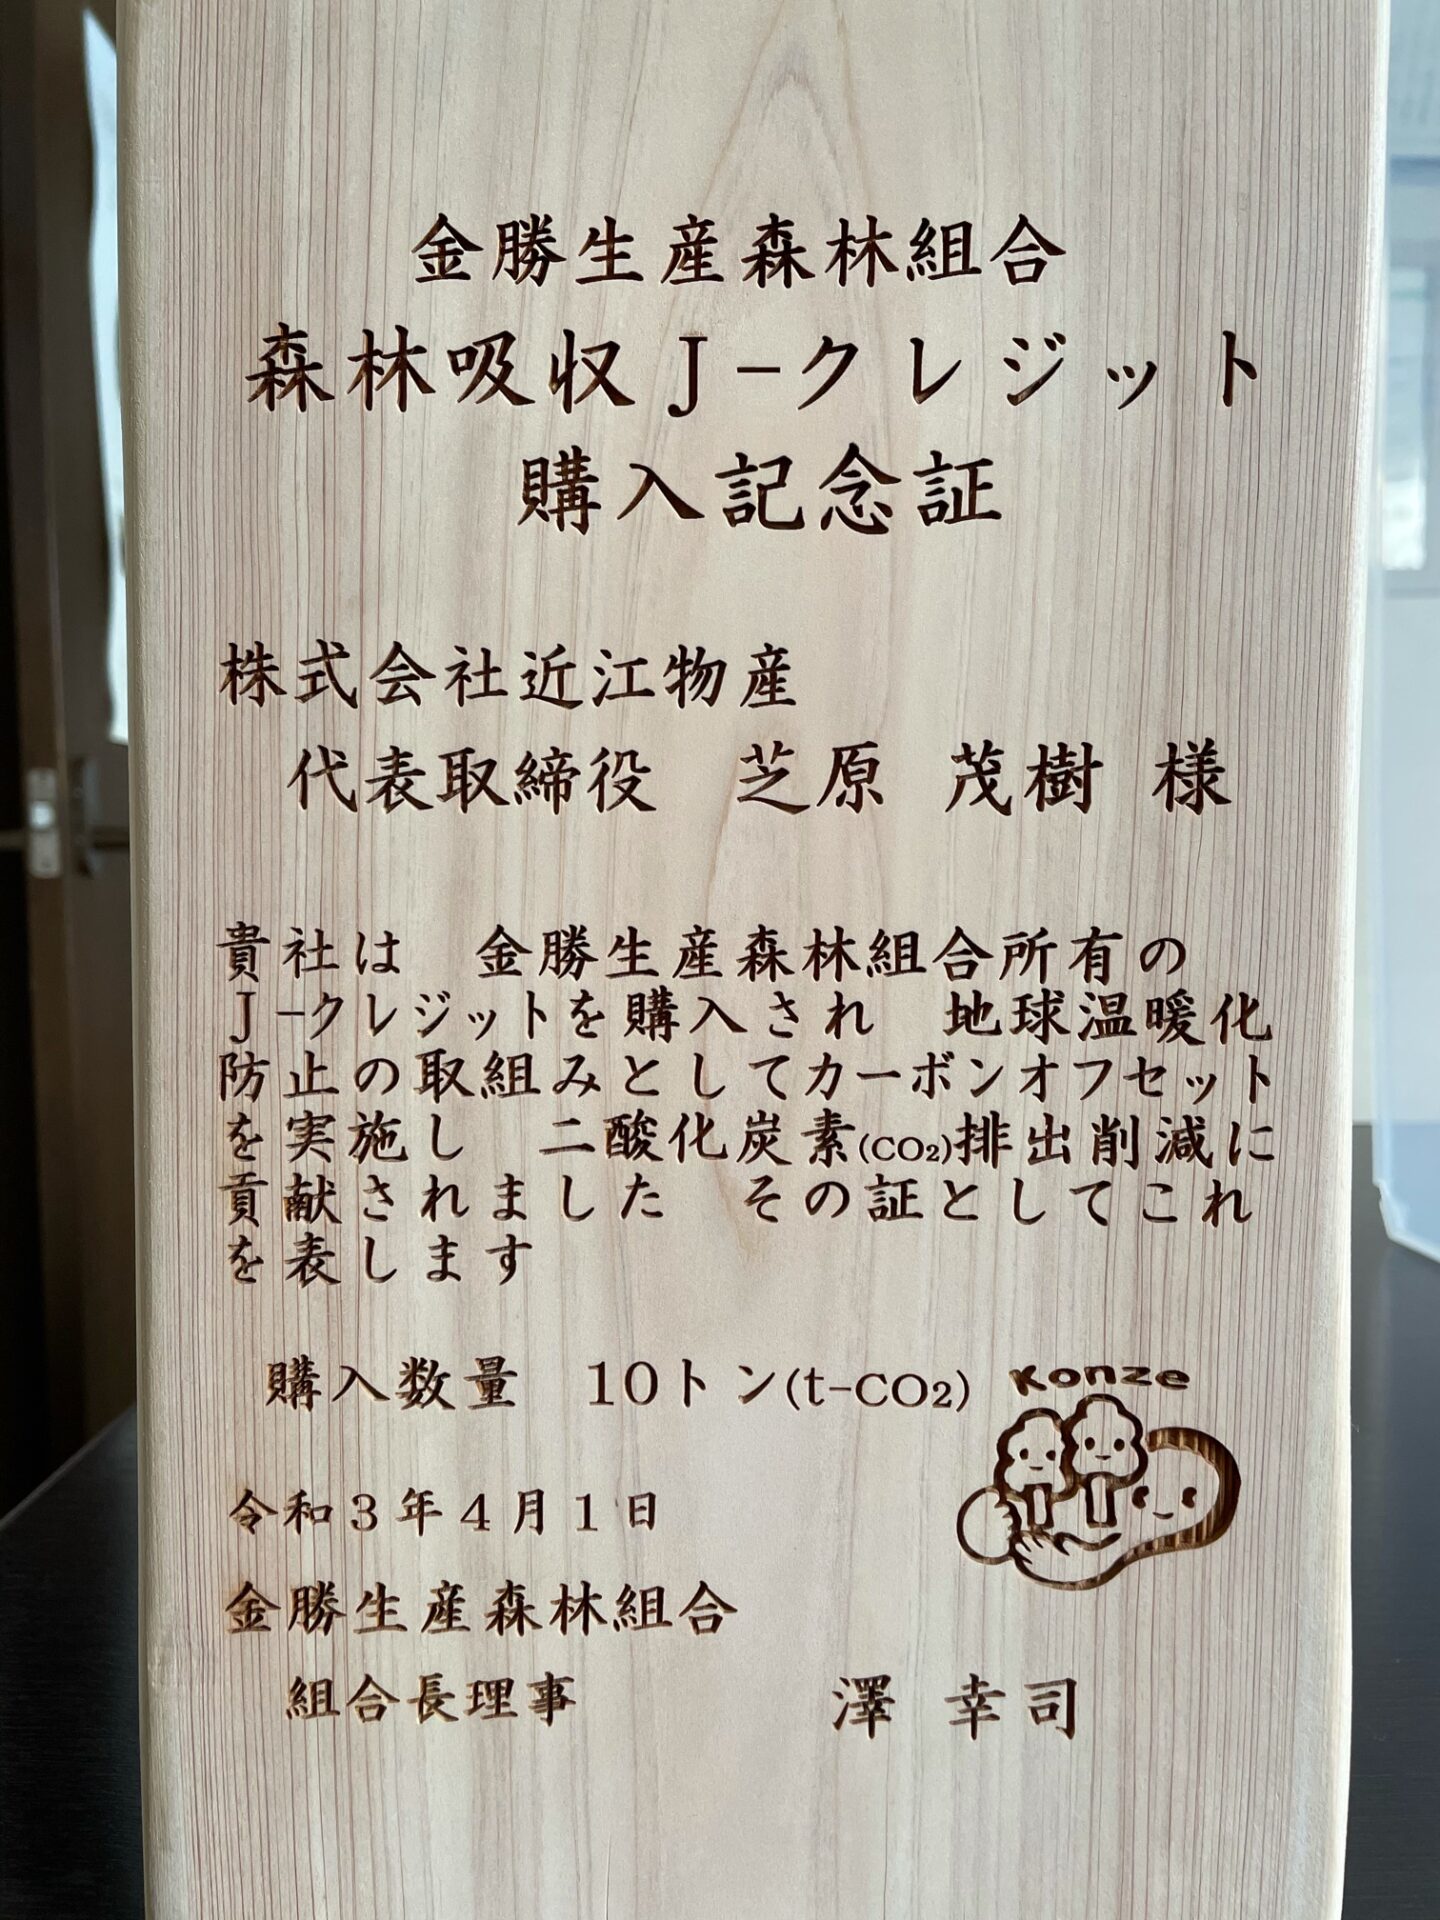 金勝生産森林組合
森林吸収J-クレジット
購入記念証
株式会社近江物産
代表取締役 芝原 茂樹 様
貴社は 金勝生産森林組合所有の
J-クレジットを購入され 地球温暖化
防止の取組みとしてカーボンオフセット
を実施し 二酸化炭素(CO₂)排出削減に
貢献されました その証としてこれ
を表します
購入数量 10トン(t-CO₂)
Konze
令和3年4月1日
金勝生産森林組合
組合長理事 澤 幸司